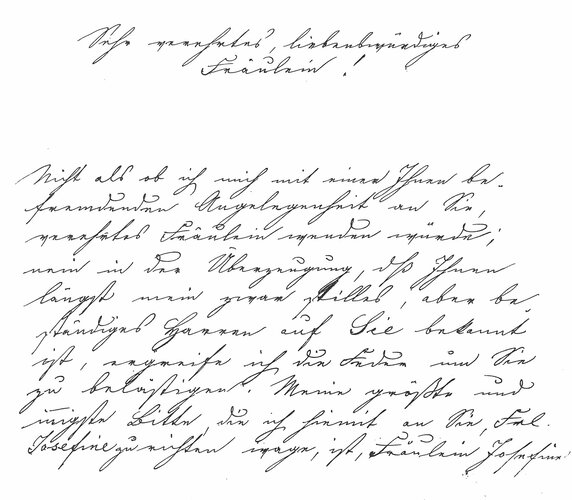 Sehr verehrtes, liebenswürdiges
Fräulein!
Nicht als ob ich mich mit einer Ihnen be-
fremdenden Angelegenheit an Sie,
verehrtes Fräulein wenden würde;
nein in der Überzeugung, dß Ihnen
längst mein zwar stilles, aber be-
ständiges Harren auf Sie bekannt
ist, ergreife ich die Feder um Sie
zu belästigen. Meine größte und
innigste Bitte, die ich hiemit an Sie, Frl.
Josefine zu richten wage, ist, Fräulein Josefine